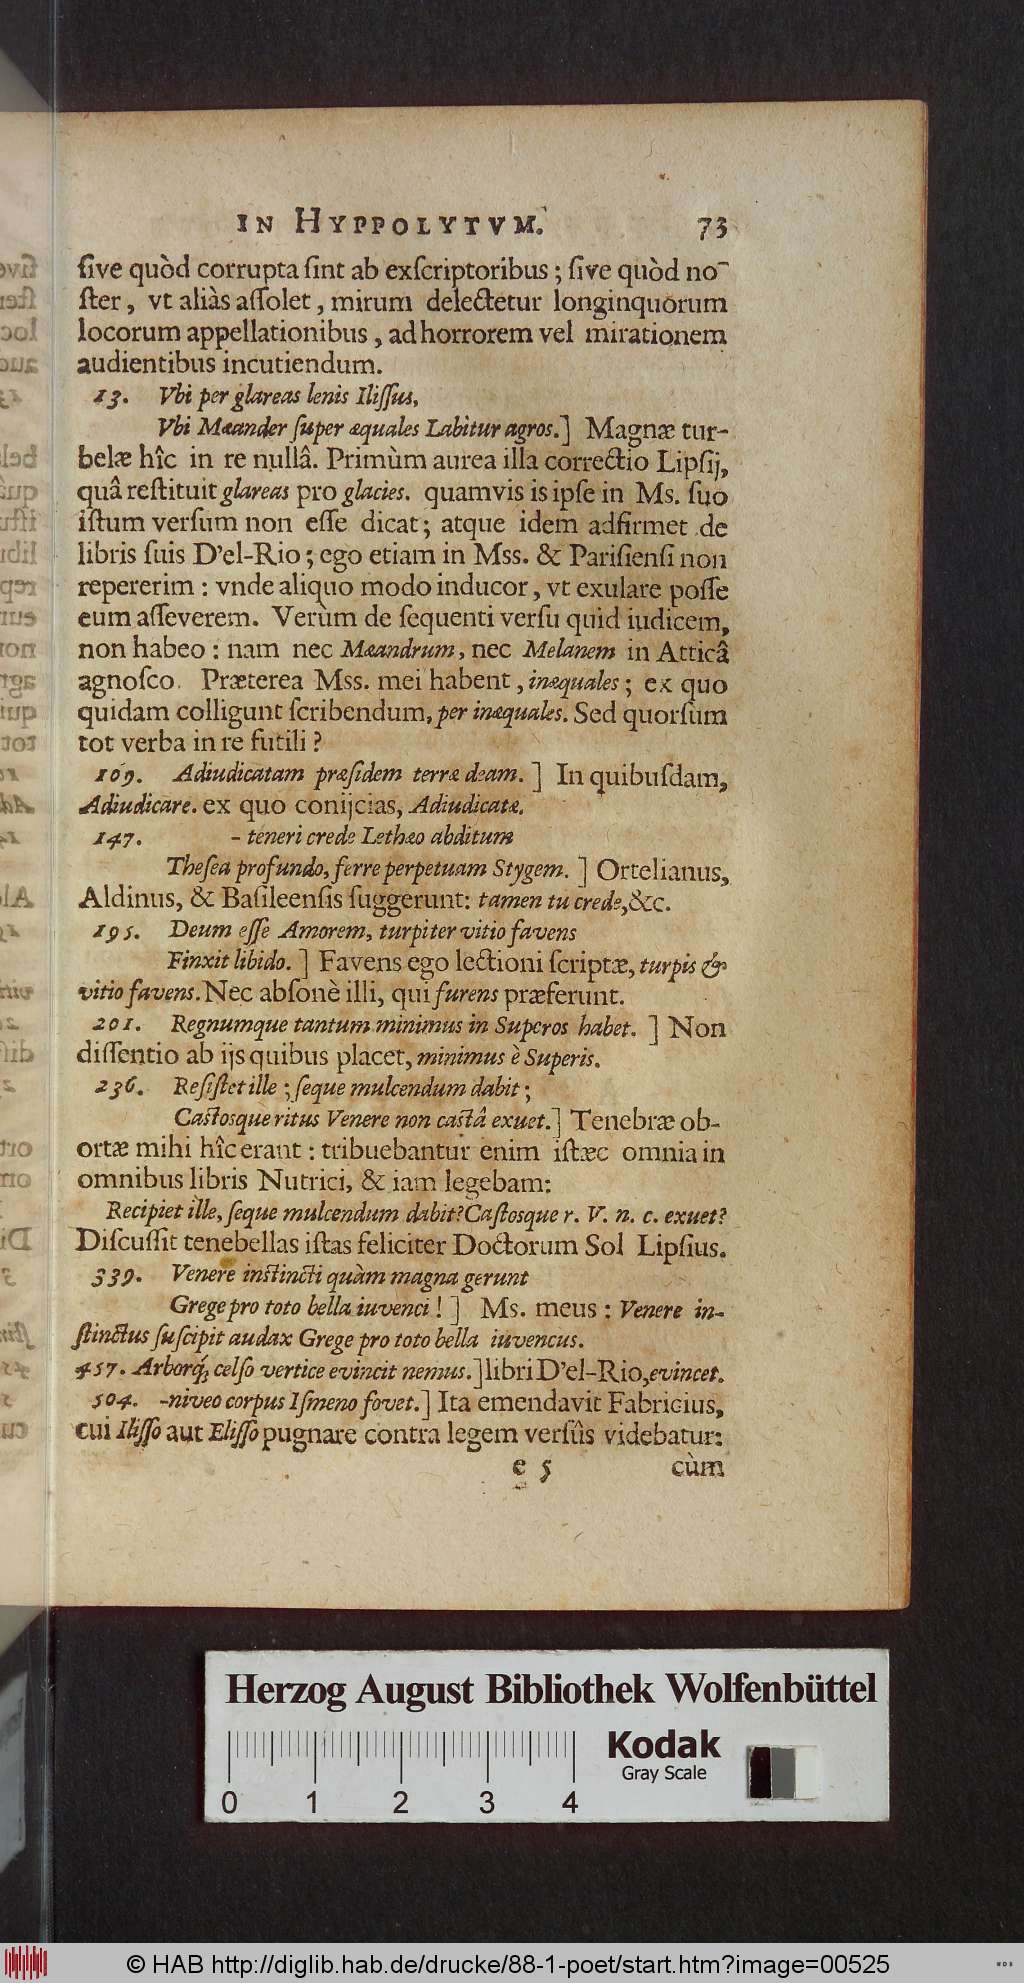 IN HYPPOLYTVM. 73
ſive quòd corrupta ſint ab exſcriptoribus; ſive quòd no-
ſter, vt aliàs aſſolet, mirum delectetur longinquorum
locorum appellationibus, ad horrorem vel mirationem
audientibus incutiendum.
13. Vbi per glareas lenis Iliſſus,
Vbi Mæander ſuper æquales Labitur agros.] Magnæ tur-
belæ hîc in re nullâ. Primùm aurea illa correctio Lipſij,
quâ reſtituit glareas pro glacies. quamvis is ipſe in Ms. ſuo
iſtum verſum non eſſe dicat; atque idem adfirmet de
libris ſuis D'el-Rio; ego etiam in Mss. & Pariſienſi non
repererim: vnde aliquo modo inducor, vt exulare poſſe
eum aſſeverem. Verùm de ſequenti verſu quid iudicem,
non habeo: nam nec Mæandrum, nec Melanem in Atticâ
agnoſco. Præterea Mss. mei habent, inæquales; ex quo
quidam colligunt ſcribendum, per inæquales. Sed quorſum
tot verba in re futili?
109. Adiudicatam præſidem terræ deam.] In quibuſdam,
Adiudicare. ex quo conijcias, Adiudicatæ.
147. - teneri crede Lethæo abditum
Theſea profundo, ferre perpetuam Stygem.] Ortelianus,
Aldinus, & Baſileenſis ſuggerunt: tamen tu crede, &c.
195. Deum eſſe Amorem, turpiter vitio favens
Finxit libido.] Favens ego lectioni ſcriptæ, turpis &
vitio favens. Nec abſonè illi, qui furens præferunt.
201. Regnumque tantum minimus in Superos habet.] Non
diſſentio ab ijs quibus placet, minimus è Superis.
236. Reſiſtet ille; ſeque mulcendum dabit;
Caſtosque ritus Venere non caſtâ exuet.] Tenebræ ob-
ortæ mihi hîc erant: tribuebantur enim iſtæc omnia in
omnibus libris Nutrici, & iam legebam:
Recipiet ille, ſeque mulcendum dabit? Caſtosque r. V. n. c. exuet?
Diſcuſſit tenebellas iſtas feliciter Doctorum Sol Lipſius.
339. Venere inſtincti quàm magna gerunt
Grege pro toto bella iuvenci!] Ms. meus: Venere in-
ſtinctus ſuſcipit audax Grege pro toto bella iuvencus.
457. Arborq́; celſo vertice evincit nemus.] libri D'el-Rio, evincet.
504. -niveo corpus Iſmeno fovet.] Ita emendavit Fabricius,
cui Iliſſo aut Eliſſo pugnare contra legem verſûs videbatur:
e 5 cùm
Herzog August Bibliothek Wolfenbüttel
Kodak
Gray Scale
0 1 2 3 4
© HAB http://diglib.hab.de/drucke/88-1-poet/start.htm?image=00525